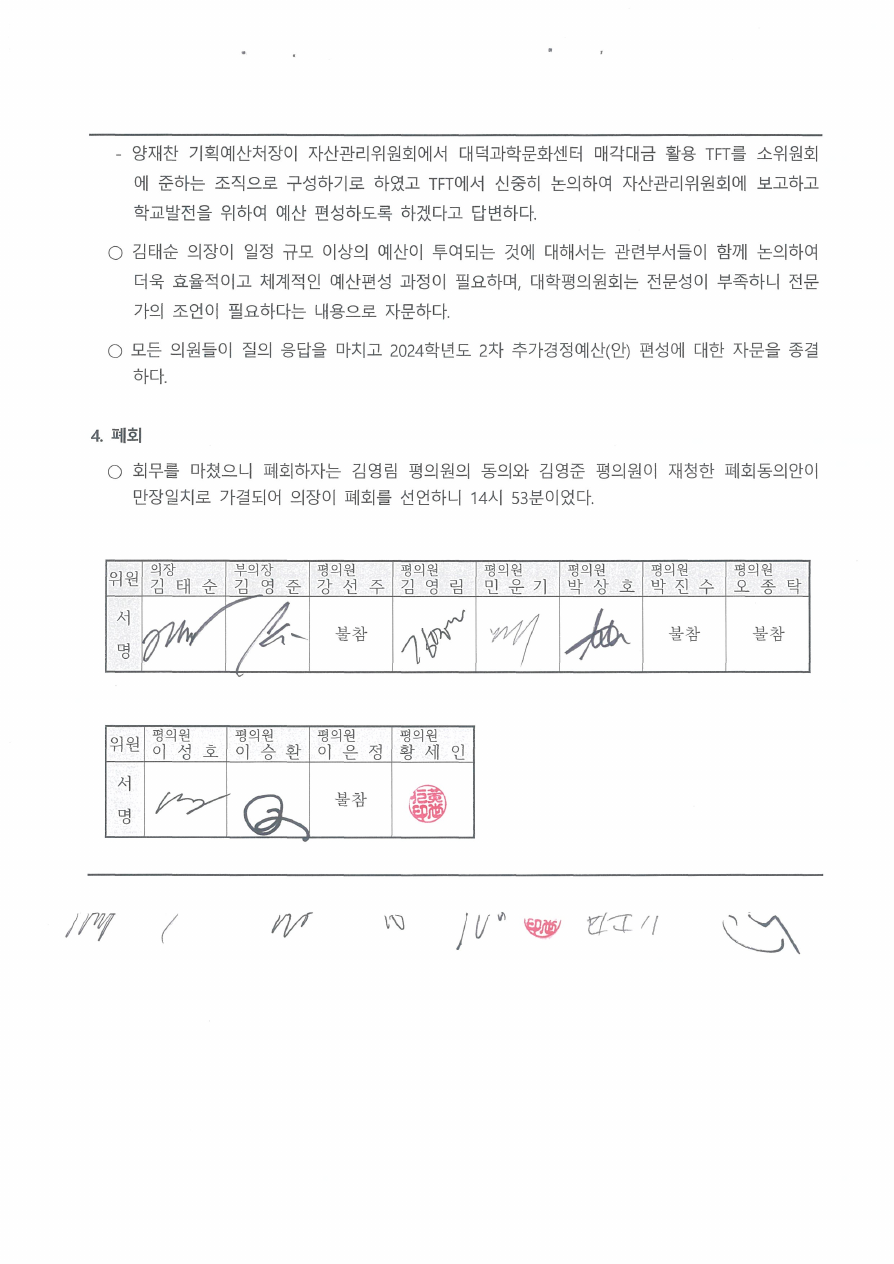 - 양재찬 기획예산처장이 자산관리위원회에서 대덕과학문화센터 매각대금 활용 TFT를 소위원회
에 준하는 조직으로 구성하기로 하였고 TFT에서 신중히 논의하여 자산관리위원회에 보고하고
학교발전을 위하여 예산 편성하도록 하겠다고 답변하다.
○ 김태순 의장이 일정 규모 이상의 예산이 투여되는 것에 대해서는 관련부서들이 함께 논의하여
더욱 효율적이고 체계적인 예산편성 과정이 필요하며, 대학평의원회는 전문성이 부족하니 전문
가의 조언이 필요하다는 내용으로 자문하다.
○ 모든 의원들이 질의 응답을 마치고 2024학년도 2차 추가경정예산(안) 편성에 대한 자문을 종결
하다.
4. 폐회
○ 회무를 마쳤으니 폐회하자는 김영림 평의원의 동의와 김영준 평의원이 재청한 폐회동의안이
만장일치로 가결되어 의장이 폐회를 선언하니 14시 53분이었다.
위원 의장 부의장 평의원 평의원 평의원 평의원 평의원 평의원
김태순 김영준 강선주 김영림 민운기 박상호 박진수 오종탁
서명 불참 불참 불참
위원 평의원 평의원 평의원 평의원
이성호 이승환 이은정 황세인
서명 불참